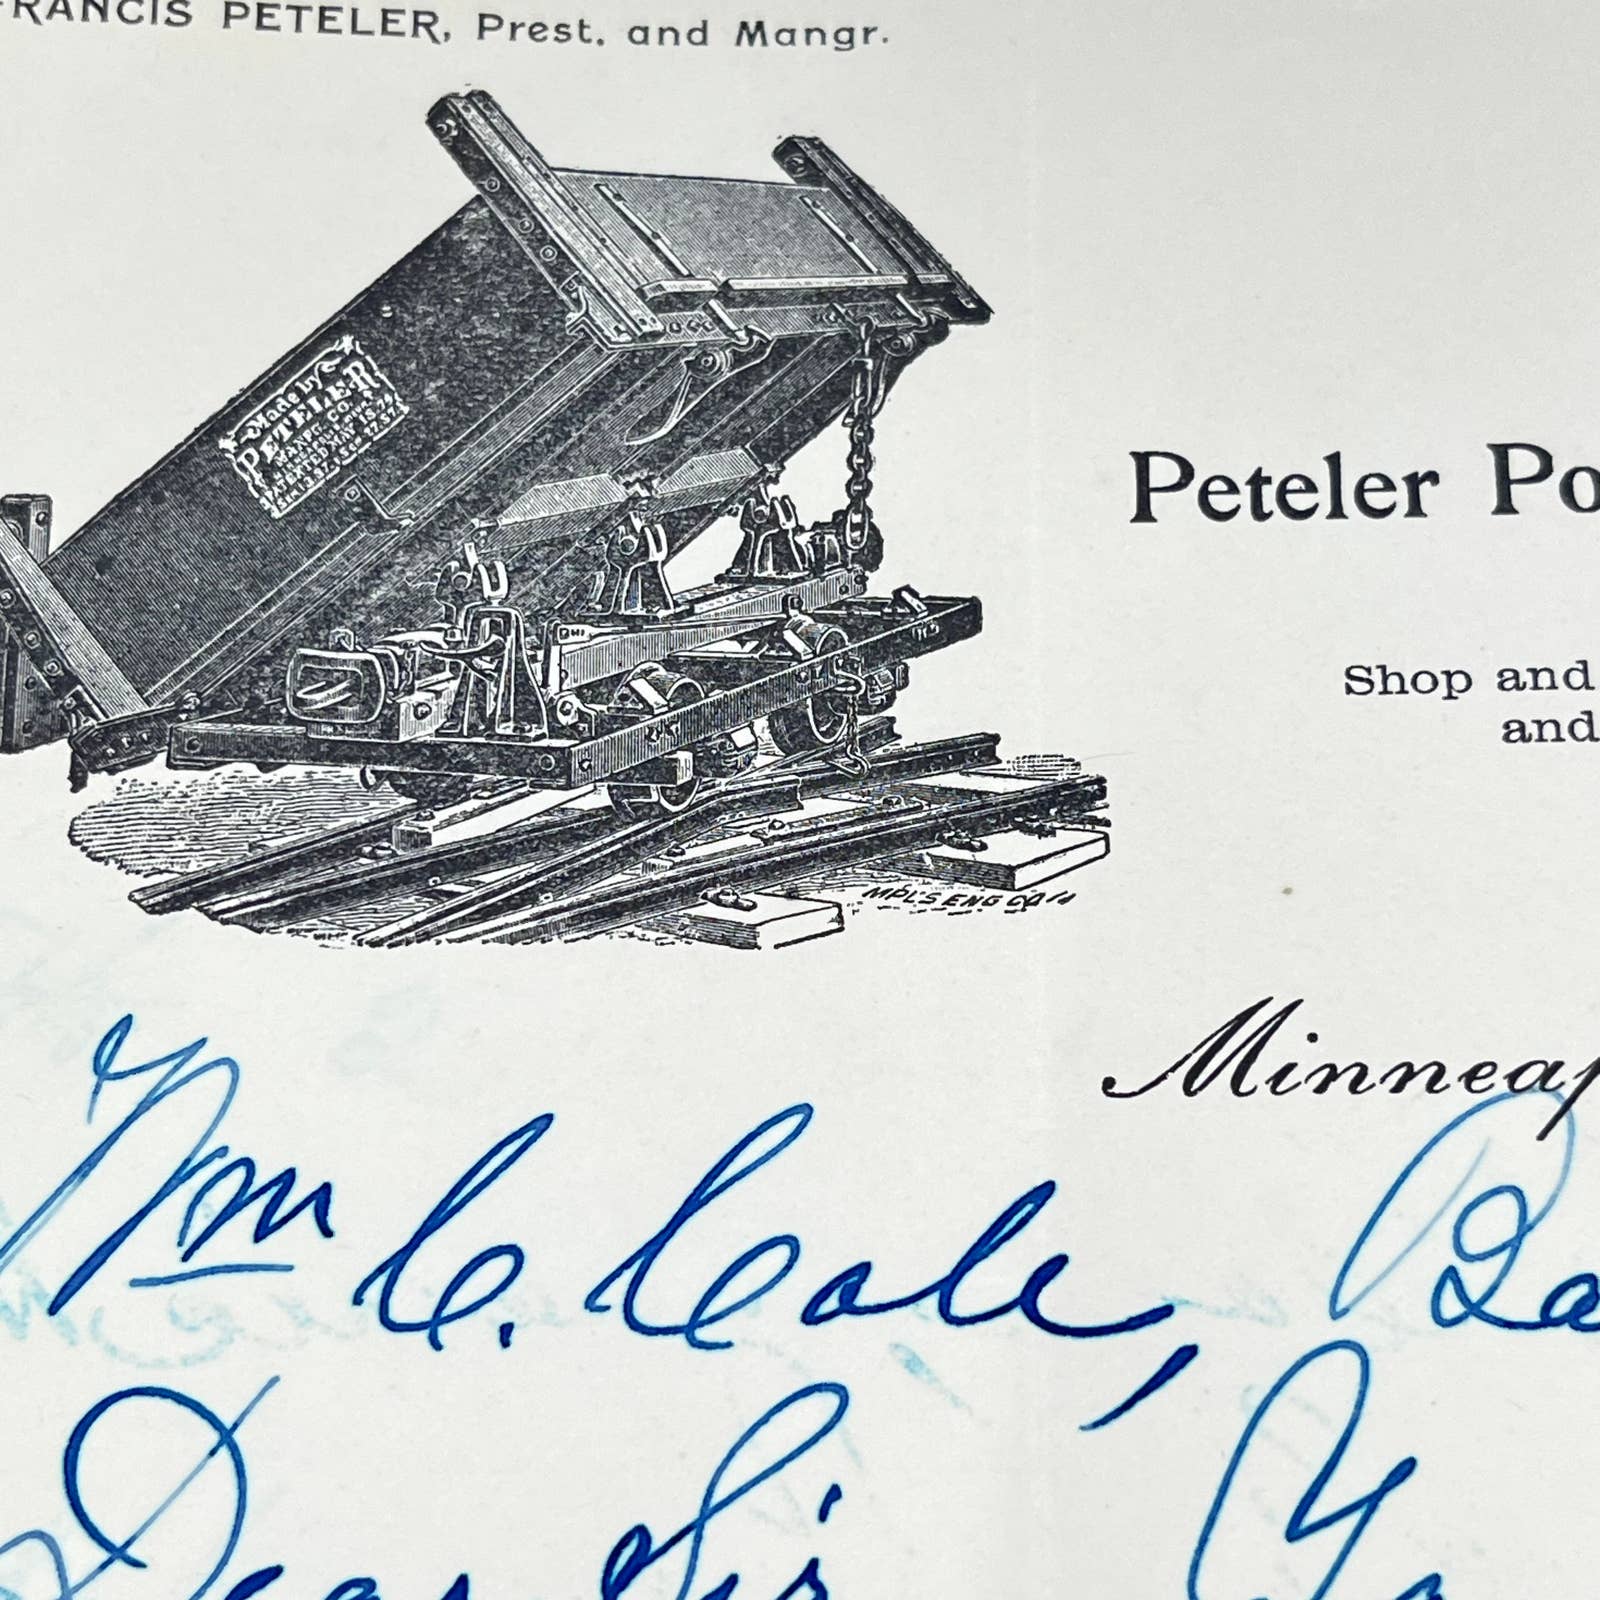 FRANCIS PETELER, Prest. and Mangr.
Made by
PETELER
MANFG. CO.
PATENTED MAY 15.74
Peteler Po
Shop and
and
MPL'S ENG CO
Minneap
Wm C. Cole, Ba
Dear Sir Yo